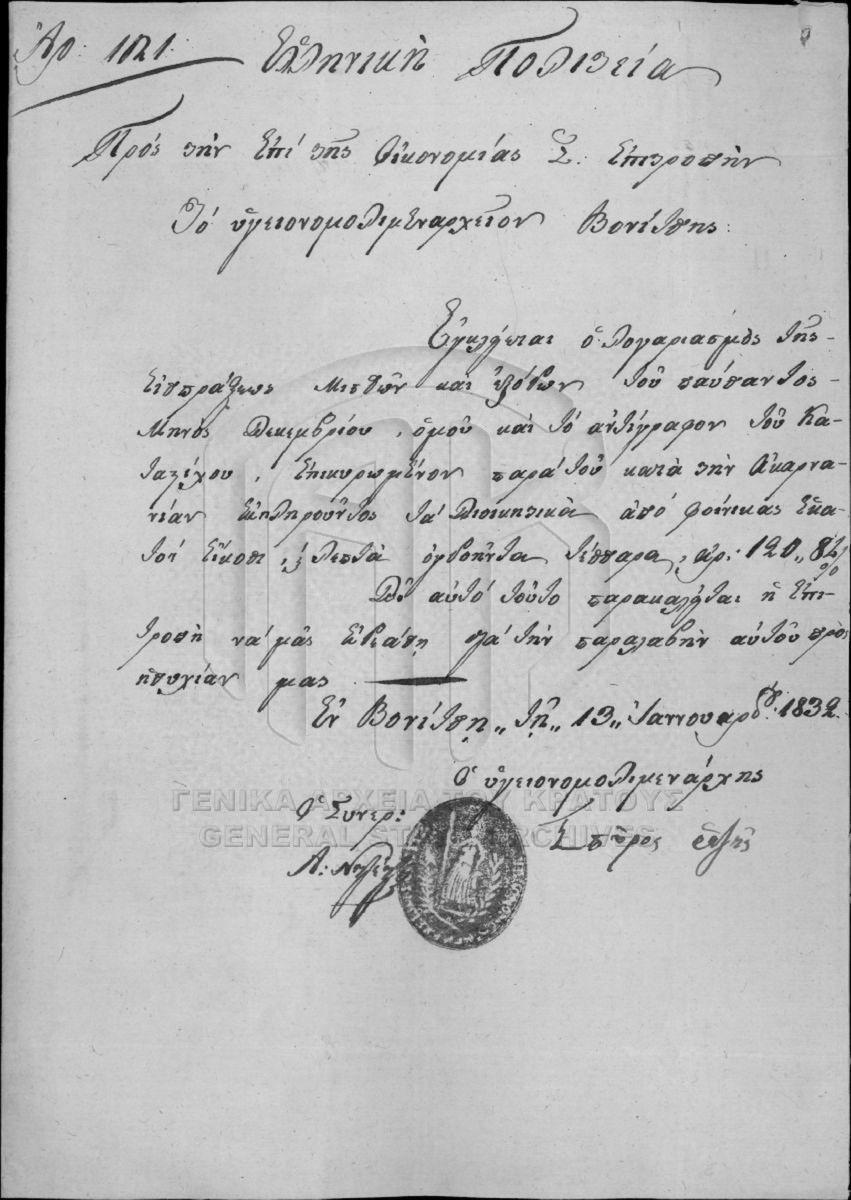 Ἀρ: 1121 Ἑλληνικὴ Πολιτεία
Πρός τὴν Ἐπί τῆς Οἰκονομίας Σ. Ἐπιτροπὴν
Τό ὑγειονομολιμεναρχεῖον Βονίτζης:
Ἐγκλείεται ὁ λογαριασμὸς τῆς
Εἰσπράξεως μισθῶν καὶ ἐξόδων τοῦ παύσαντος
Μηνὸς Δεκεμβρίου, ὁμοῦ καὶ τό ἀντίγραφον τοῦ Κα-
ταστίχου, ἐπικυρωμένον παρά τοῦ κατά τὴν Ἀκαρνα-
νίαν ἐκπληροῦντος τά Διοικητικά ἀπό φοίνικας ἑκα-
τόν εἴκοσι, λεπτὰ ὀγδοῆντα τέσσαρα, ἀρ: 120,,84
Δι' αὐτό τοῦτο παρακαλεῖται ἡ Ἐπι-
τροπὴ νά μᾶς διά τὴν παραλαβὴν αὐτοῦ πρὸς
ἡσυχίαν μας
Ἐν Βονίτζῃ,, τῇ,, 13,, Ἰαννουαρ: 1832
Ὁ ὑγειονομολιμενάρχης
Ὁ Συνερ:
Σπῦρος
Α:
ΓΕΝΙΚΑ ΑΡΧΕΙΑ ΤΟΥ ΚΡΑΤΟΥΣ
GENERAL STATE ARCHIVES